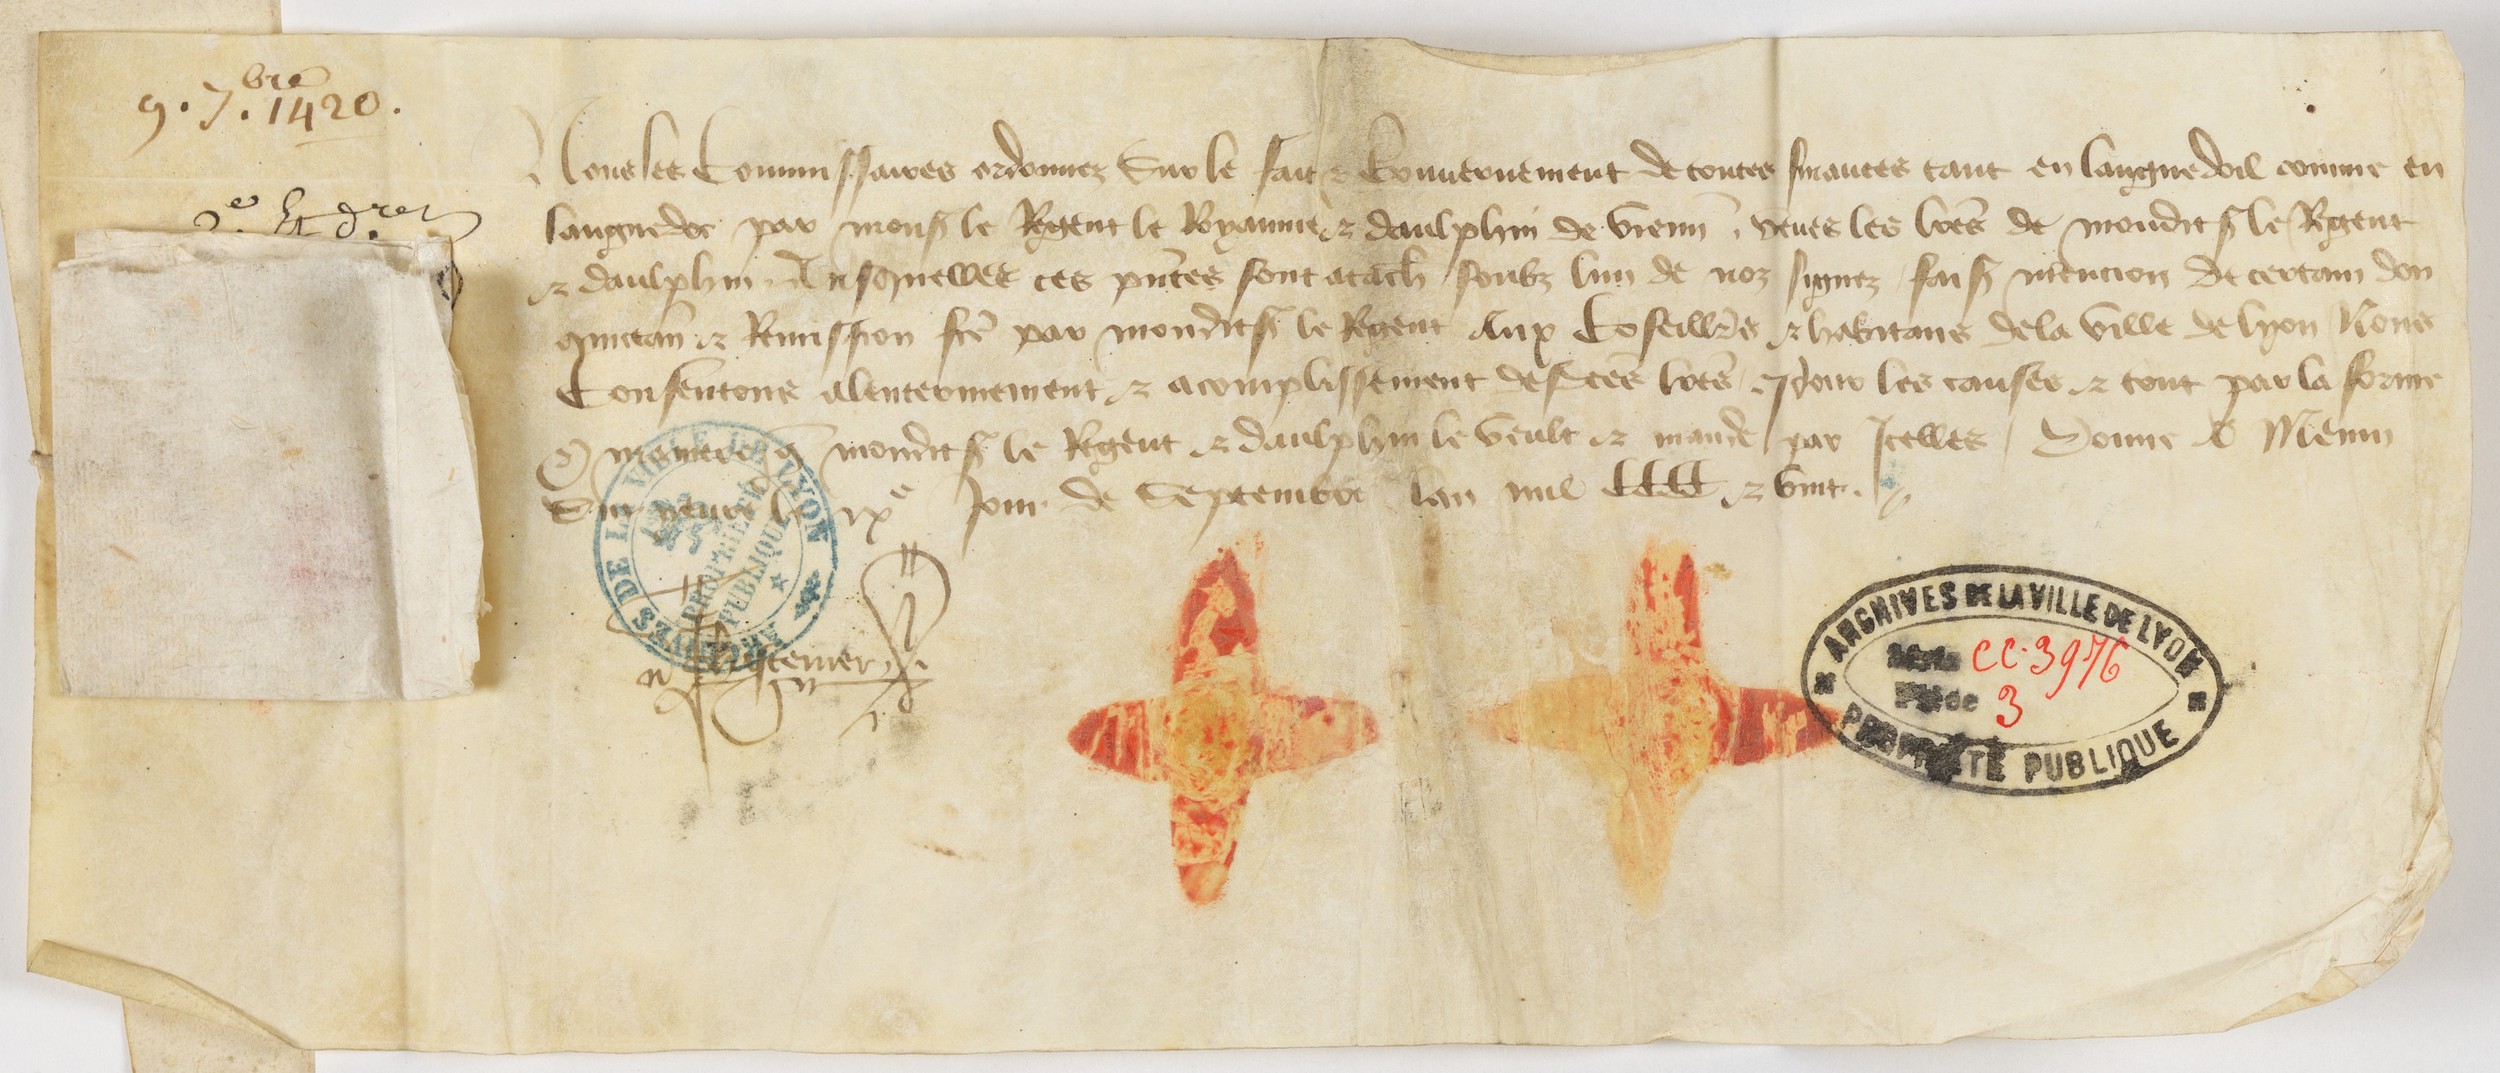 9. 7.bre 1420.
Nous les Commissaires ordonnez Sur le fait & Gouvernement de toutes finances tant en languedoil comme en
languedoc par mons le Regent le Royaume & daulphin de vienn veues les lres de mondit s le Regent
& daulphin Ausquelles ces pntes sont atach soubz lun de noz signez fais mencion de certain don
quictan & Remission fce par mondit s le Regent Aux Coseillrs & habitans de la ville de lyon Nous
Consentons alenterinement & acomplissement desd lres pour les causes & tout par la forme
& maniere q mondit s le Regent & daulphin le veult & mande par Icelles Donne a Meun
Sur yevre le ixe Jour de Septembre lan mil cccc & vint.
ARCHIVES DE LA VILLE DE LYON
PROPRIÉTÉ
PUBLIQUE
ARCHIVES DE LA VILLE DE LYON
Série CC. 3976
Pièce 3
PROPRIÉTÉ PUBLIQUE